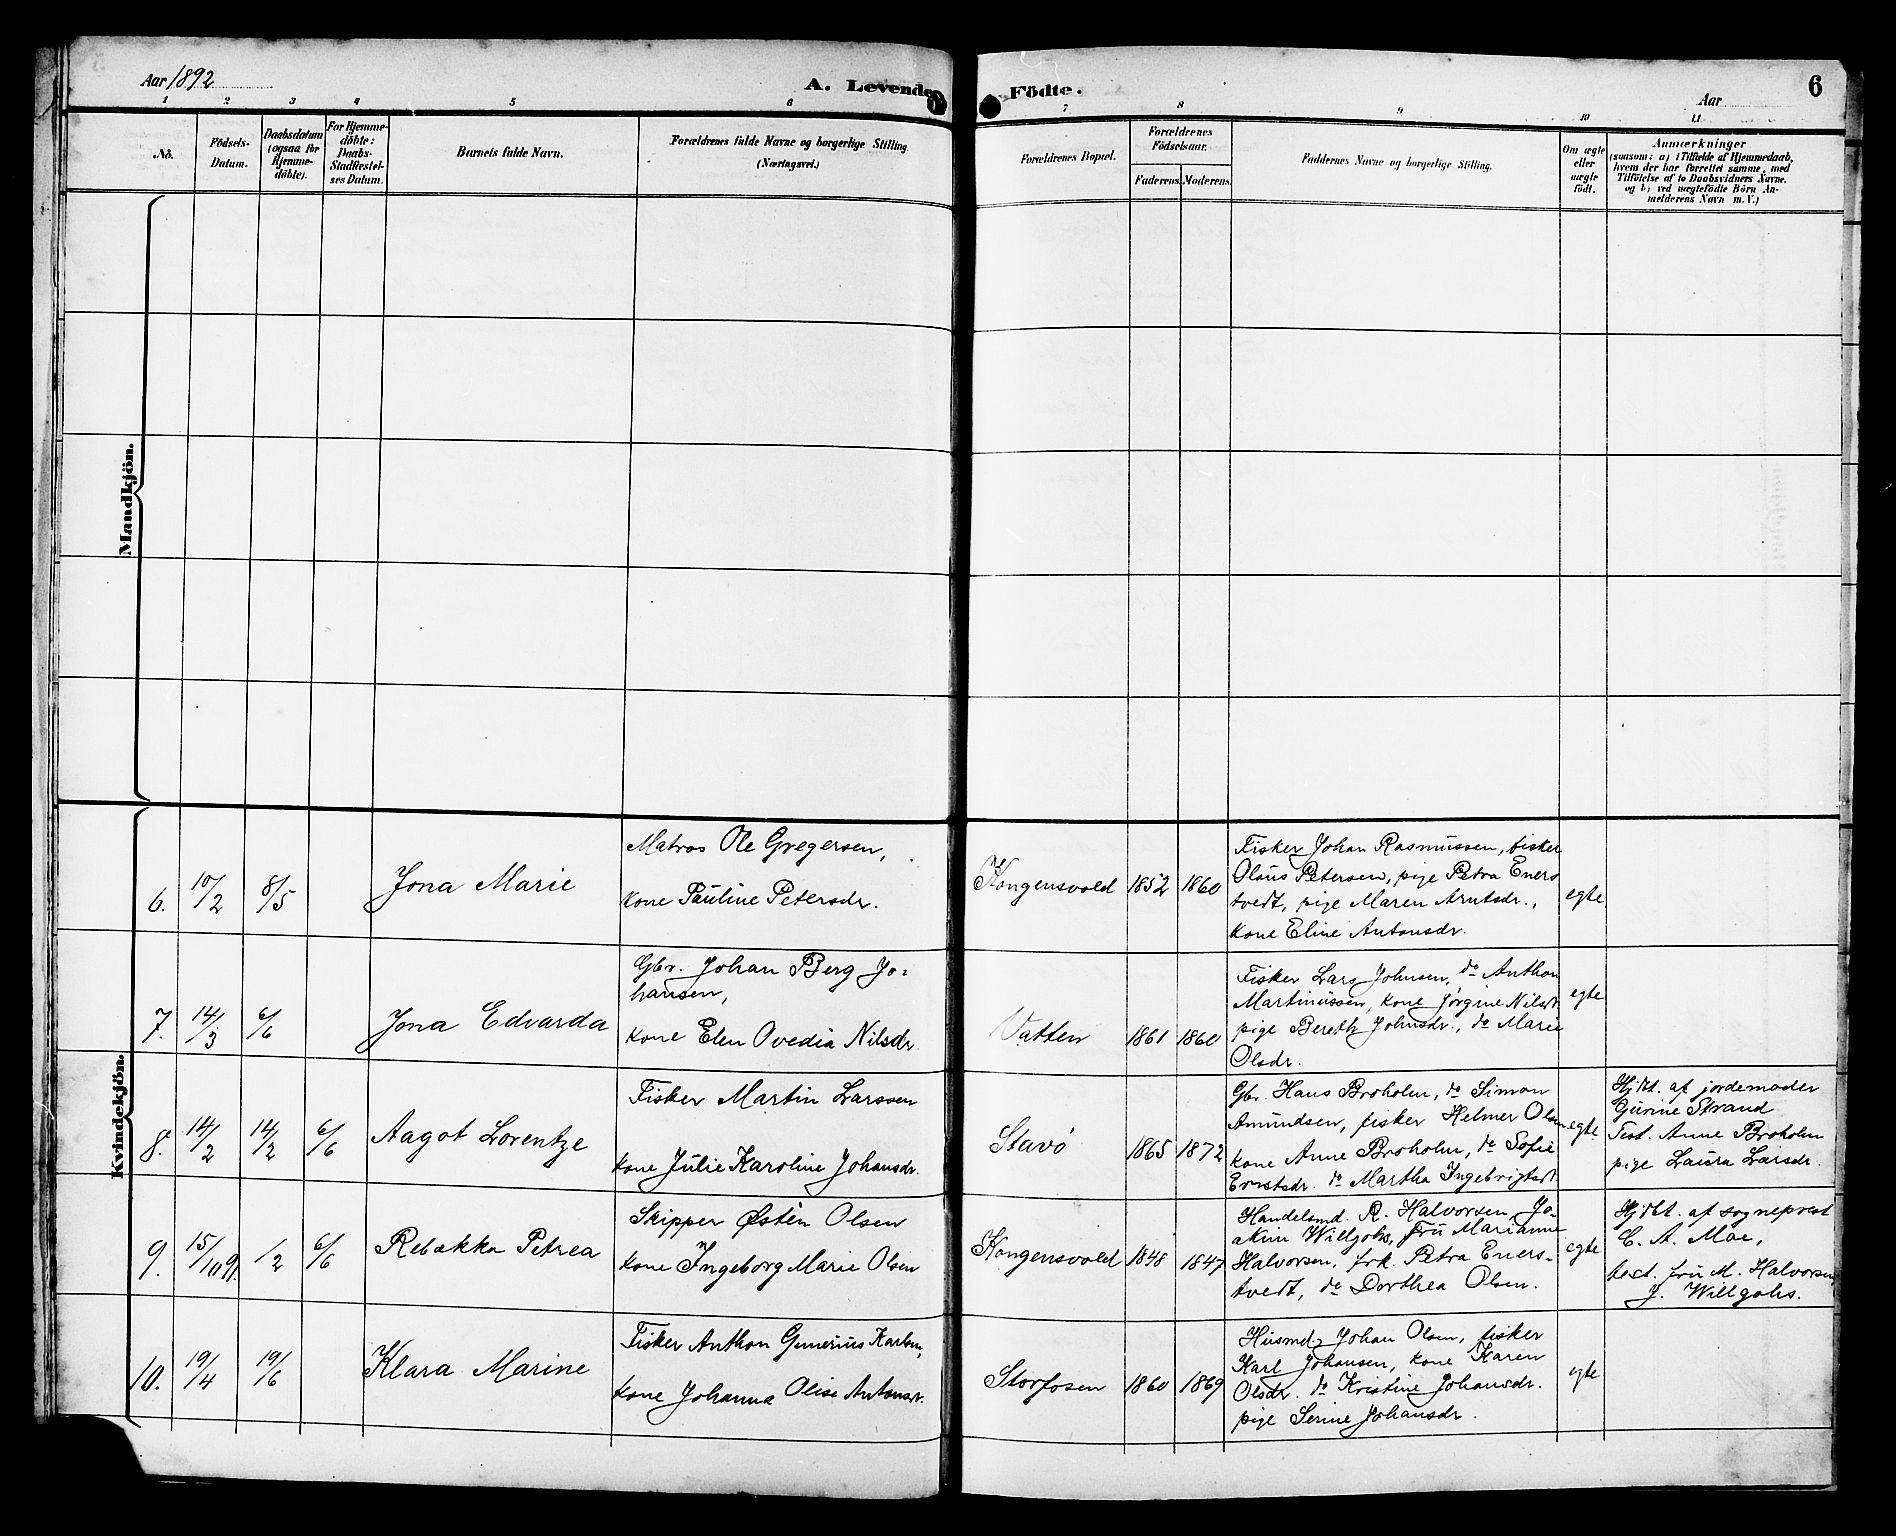 Aar 1892
A. Levende
Födte.
Aar
6
1 2 3 4 5 6 7 8 9 10 11
Nō.
Födsels-
Datum.
Daabsdatum
(ogsaa for
Hjemme-
döbte).
For Hjemme-
döbte:
Daabs-
Stadfæstel-
ses Datum.
Barnets fulde Navn.
Forældrenes fulde Navne og borgerlige Stilling
(Næringsvei.)
Forældrenes Bopæl.
Forældrenes
Födselsaar.
Faderens. Moderens.
Faddernes Navne og borgerlige Stilling.
Om ægte
eller
uægte
födt.
Anmærkninger
(saasom: a) i Tilfælde af Hjemmedaab,
hvem der har forrettet samme, med
Tilföielse af to Daabsvidners Navne.
og b) ved uægtefödte Börn An-
melderens Navn m. V.)
Mandkjön.
Kvindekjön.
6.
10/2
8/5
Jona Marie
Matros Ole Gregersen,
kone Pauline Petersdr.
Kongensvold
1852
1860
Fisker Johan Rasmussen, fisker
Olaus Petersen, pige Petra Eners
tvedt, pige Maren Arntsdr.,
kone Eline Antonsdr.
egte
7.
14/3
6/6
Jona Edvarda
Gbr. Johan Berg Jo-
hansen,
kone Elen Ovedia Nilsdr
Vatten
1861
1860
Fisker Lars Johnsen, do Anthon
Martinussen, kone Jørgine Nilsdr
pige Bereth Johnsdr., do Marie
Olsdr.
egte
8.
14/2
14/2
6/6
Aagot Lorentze
Fisker Martin Larssen
kone Julie Karoline Johansdr.
Stavø
1865
1872
Gbr. Hans Broholm, do Simon
Amundsen, fisker Helmer Olsen
kone Anne Broholm, do Sofie
Ernstsdr. do Martha Ingebrigtsdr.
egte
Hjdt. af jordemoder
Gurine Strand
Test. Anne Broholm
pige Laura Larsdr.
9.
15/10 91.
1/2
6/6
Rebækka Petrea
Skipper Østen Olsen
kone Ingeborg Marie Olsen
Kongensvold
1848
1847
Handelsmd. R. Halvorsen, Jo-
akim Willgohs, Fru Marianne
Halvorsen, frk. Petra Eners-
tvedt, do Dorthea Olsen.
egte
Hjdt. af sogneprest
C. A. Moe,
test. fru M. Halvorsen
J. Willgohs.
10.
19/4
19/6
Klara Marine
Fisker Anthon Gunerius Karlsen,
kone Johanna Olise Antonsdr.
Storfosen
1860
1869
Husmd. Johan Olsen, fisker
Karl Johansen, kone Karen
Olsdr. do Kristine Johansdr.
pige Serine Johansdr.
egte